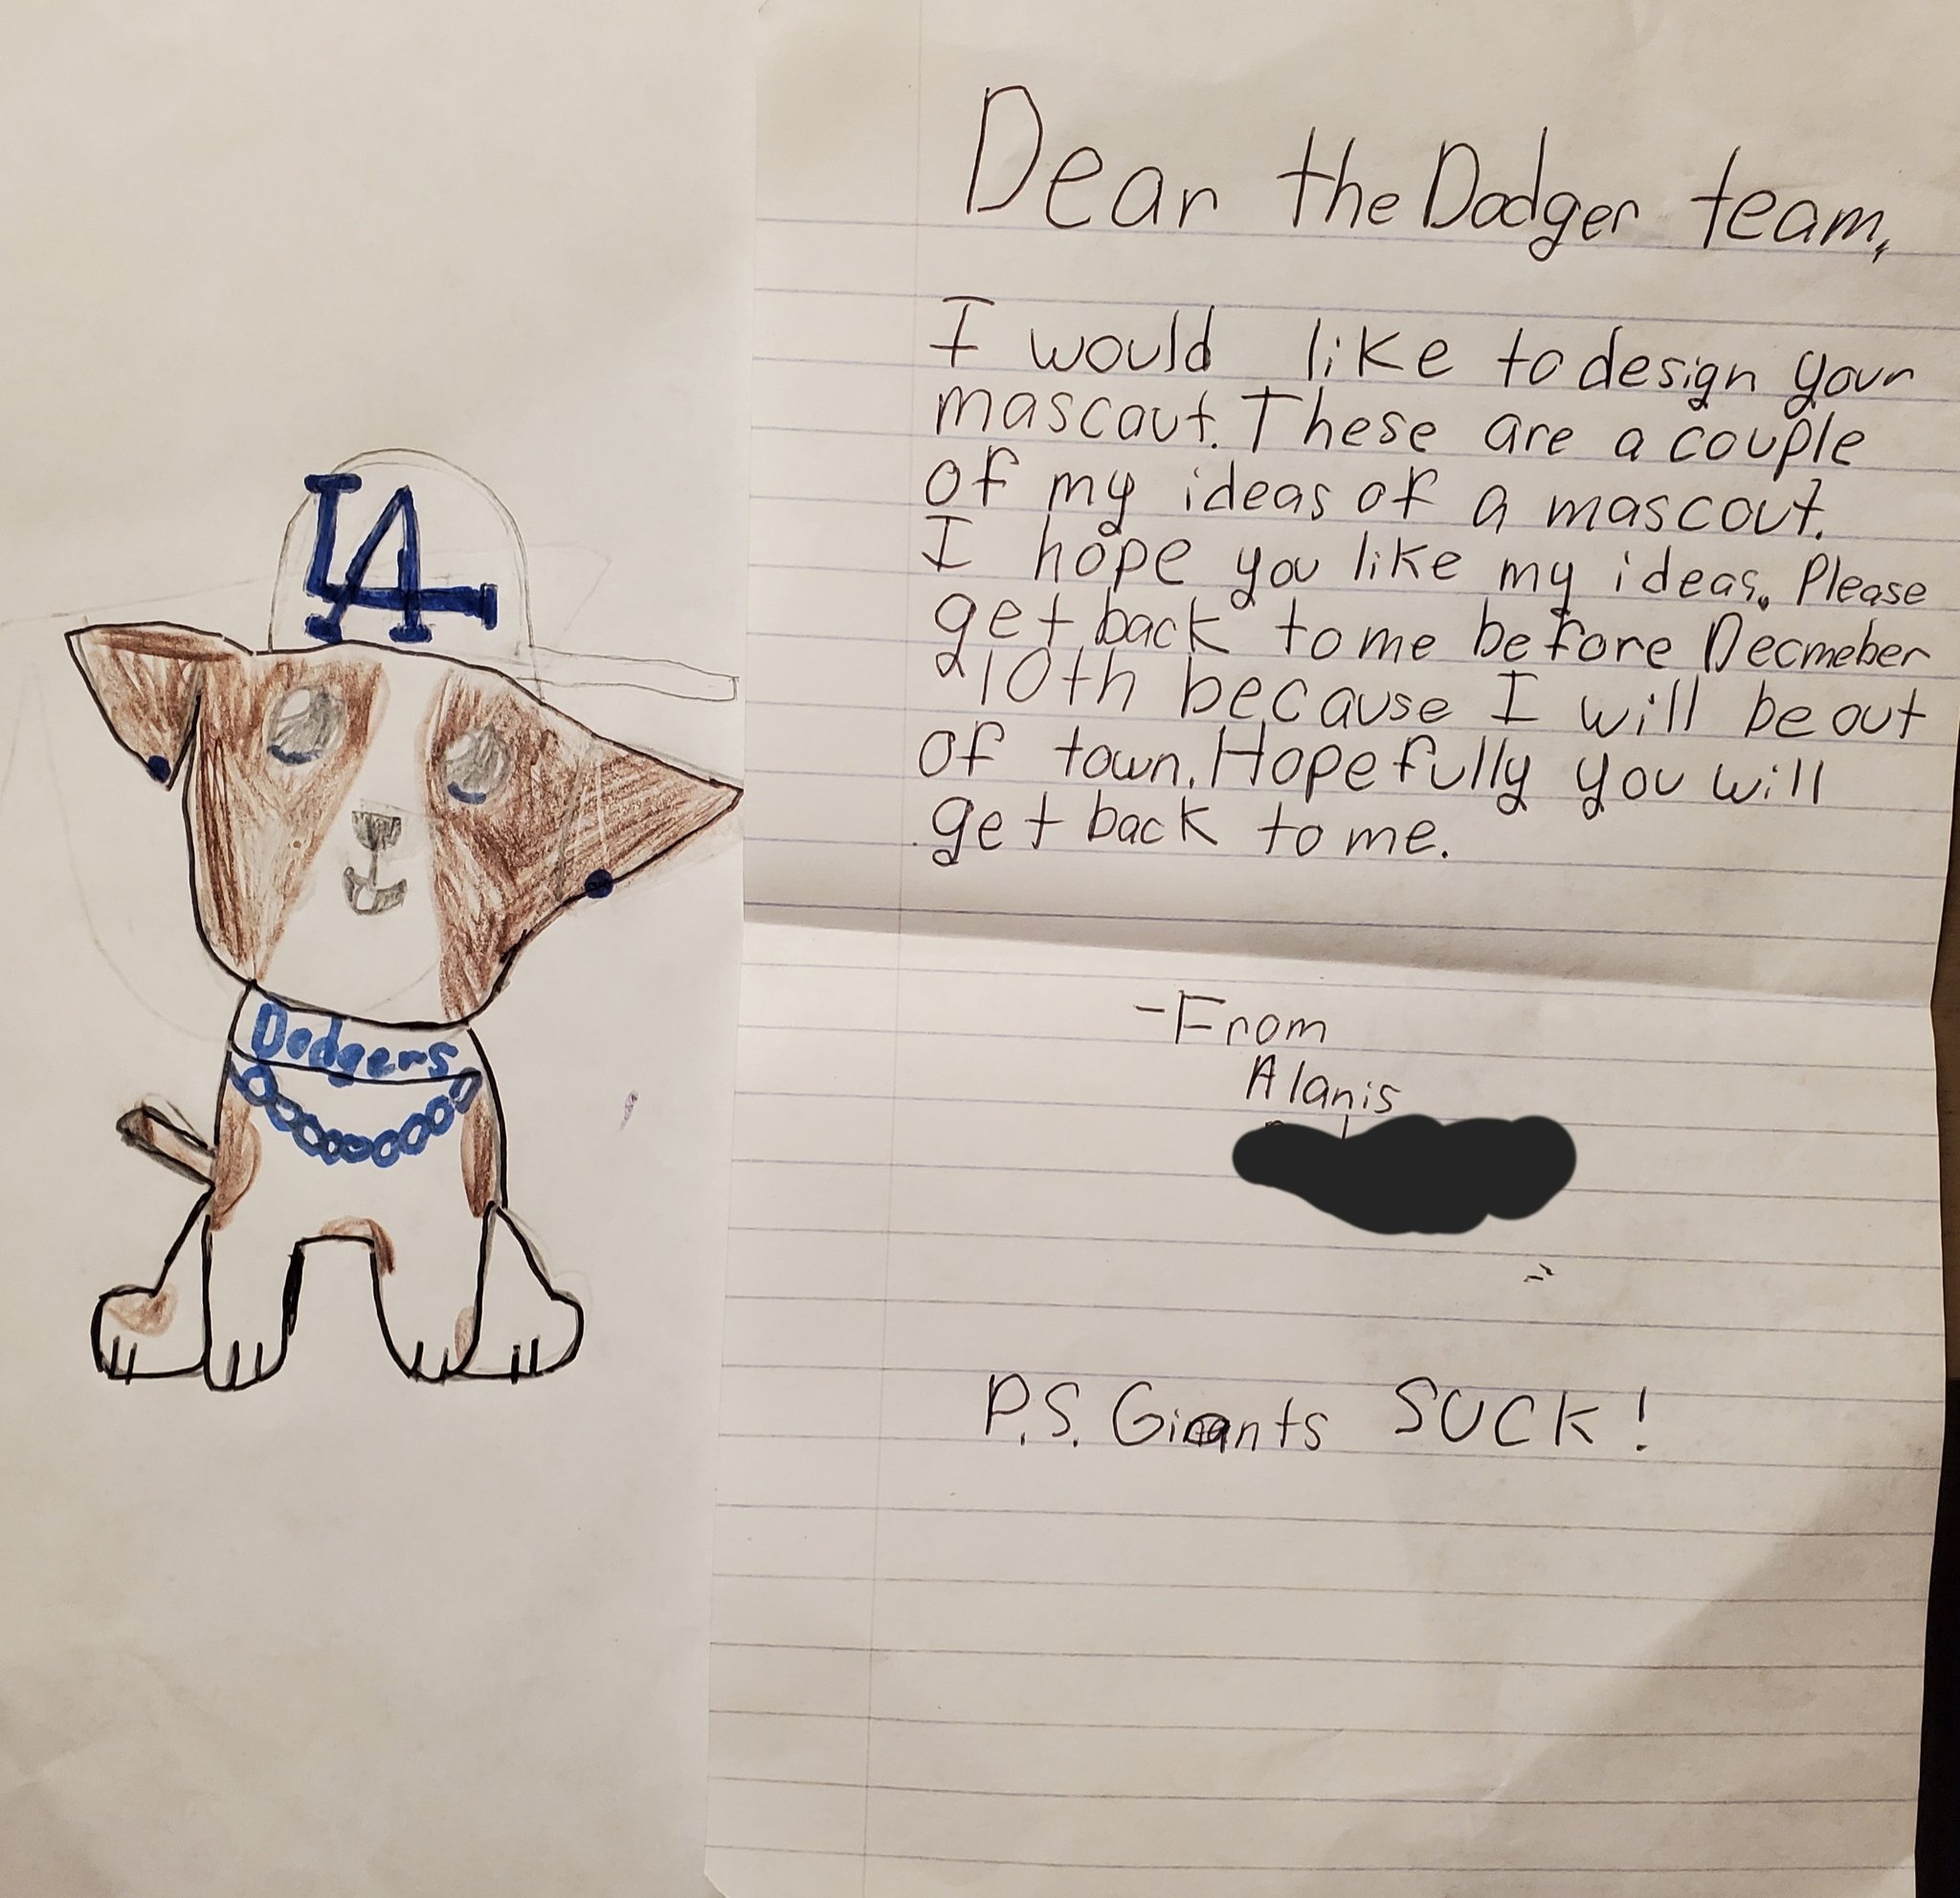 LA
Dodgers
Dear the Dodger team,
I would like to design your
mascout. These are a couple
of my ideas of a mascout.
I hope you like my ideas. Please
get back to me before Decmeber
10th because I will be out
of town. Hopefully you will
get back to me.
-From
Alanis
P.S. Giants SUCK!